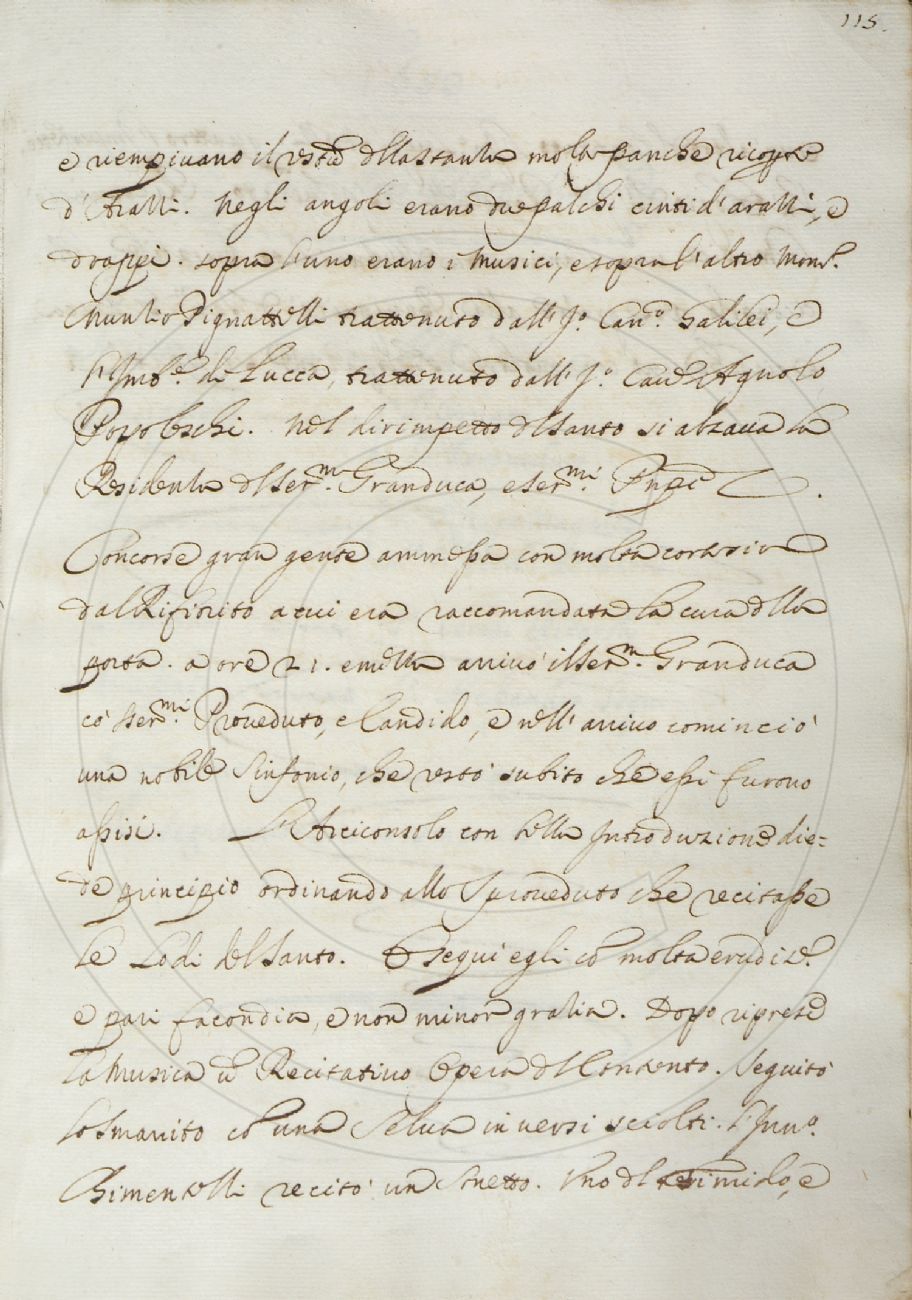 115.
e riempivano il resto della stanza molte panche ricopte
d'Aratti. Negli angoli erano due palchi cinti d'aratti, e
drappi. sopra l'uno erano i Musici, e sopra l'altro Monsr.
Nunzio Pignattelli trattenuto dall' Jo. Cano. Galilei, e
l'Imbe. di Lucca, trattenuto dall' Jo. Cau. Agnolo
Popoleschi. Nel dirimpetto del Santo si alzava la
Residenza del Serm. Granduca, e Sermi. Pnpi
Concorse gran gente ammessa con molta cortesia
dal Rifiorito a cui era raccomandata la cura della
porta. a ore 21. e mezza arrivò il Serm. Granduca
co' Sermi. Proveduto, e Candido, e nell' arrivo cominciò
una nobile Sinfonia, che restò subito che essi furono
assisi. L'Arciconsolo con bella Introduzione die=
de principio ordinando allo Sproveduto che recitasse
le Lodi del Santo. Eseguì egli cō molta erudize.
e pari facondia, e non minor grazia. Dopo riprese
la Musica ū Recitativo Opera del Contento. Seguitò
lo Smarrito cō una Selva in versi sciolti. l'Inno.
Chimentelli recitò un Sonetto. Uno del Timido, e